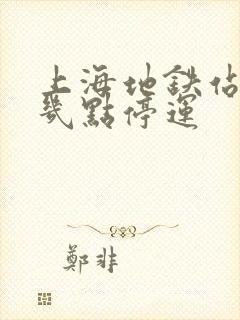 上海地铁
幾點停運
鄭非